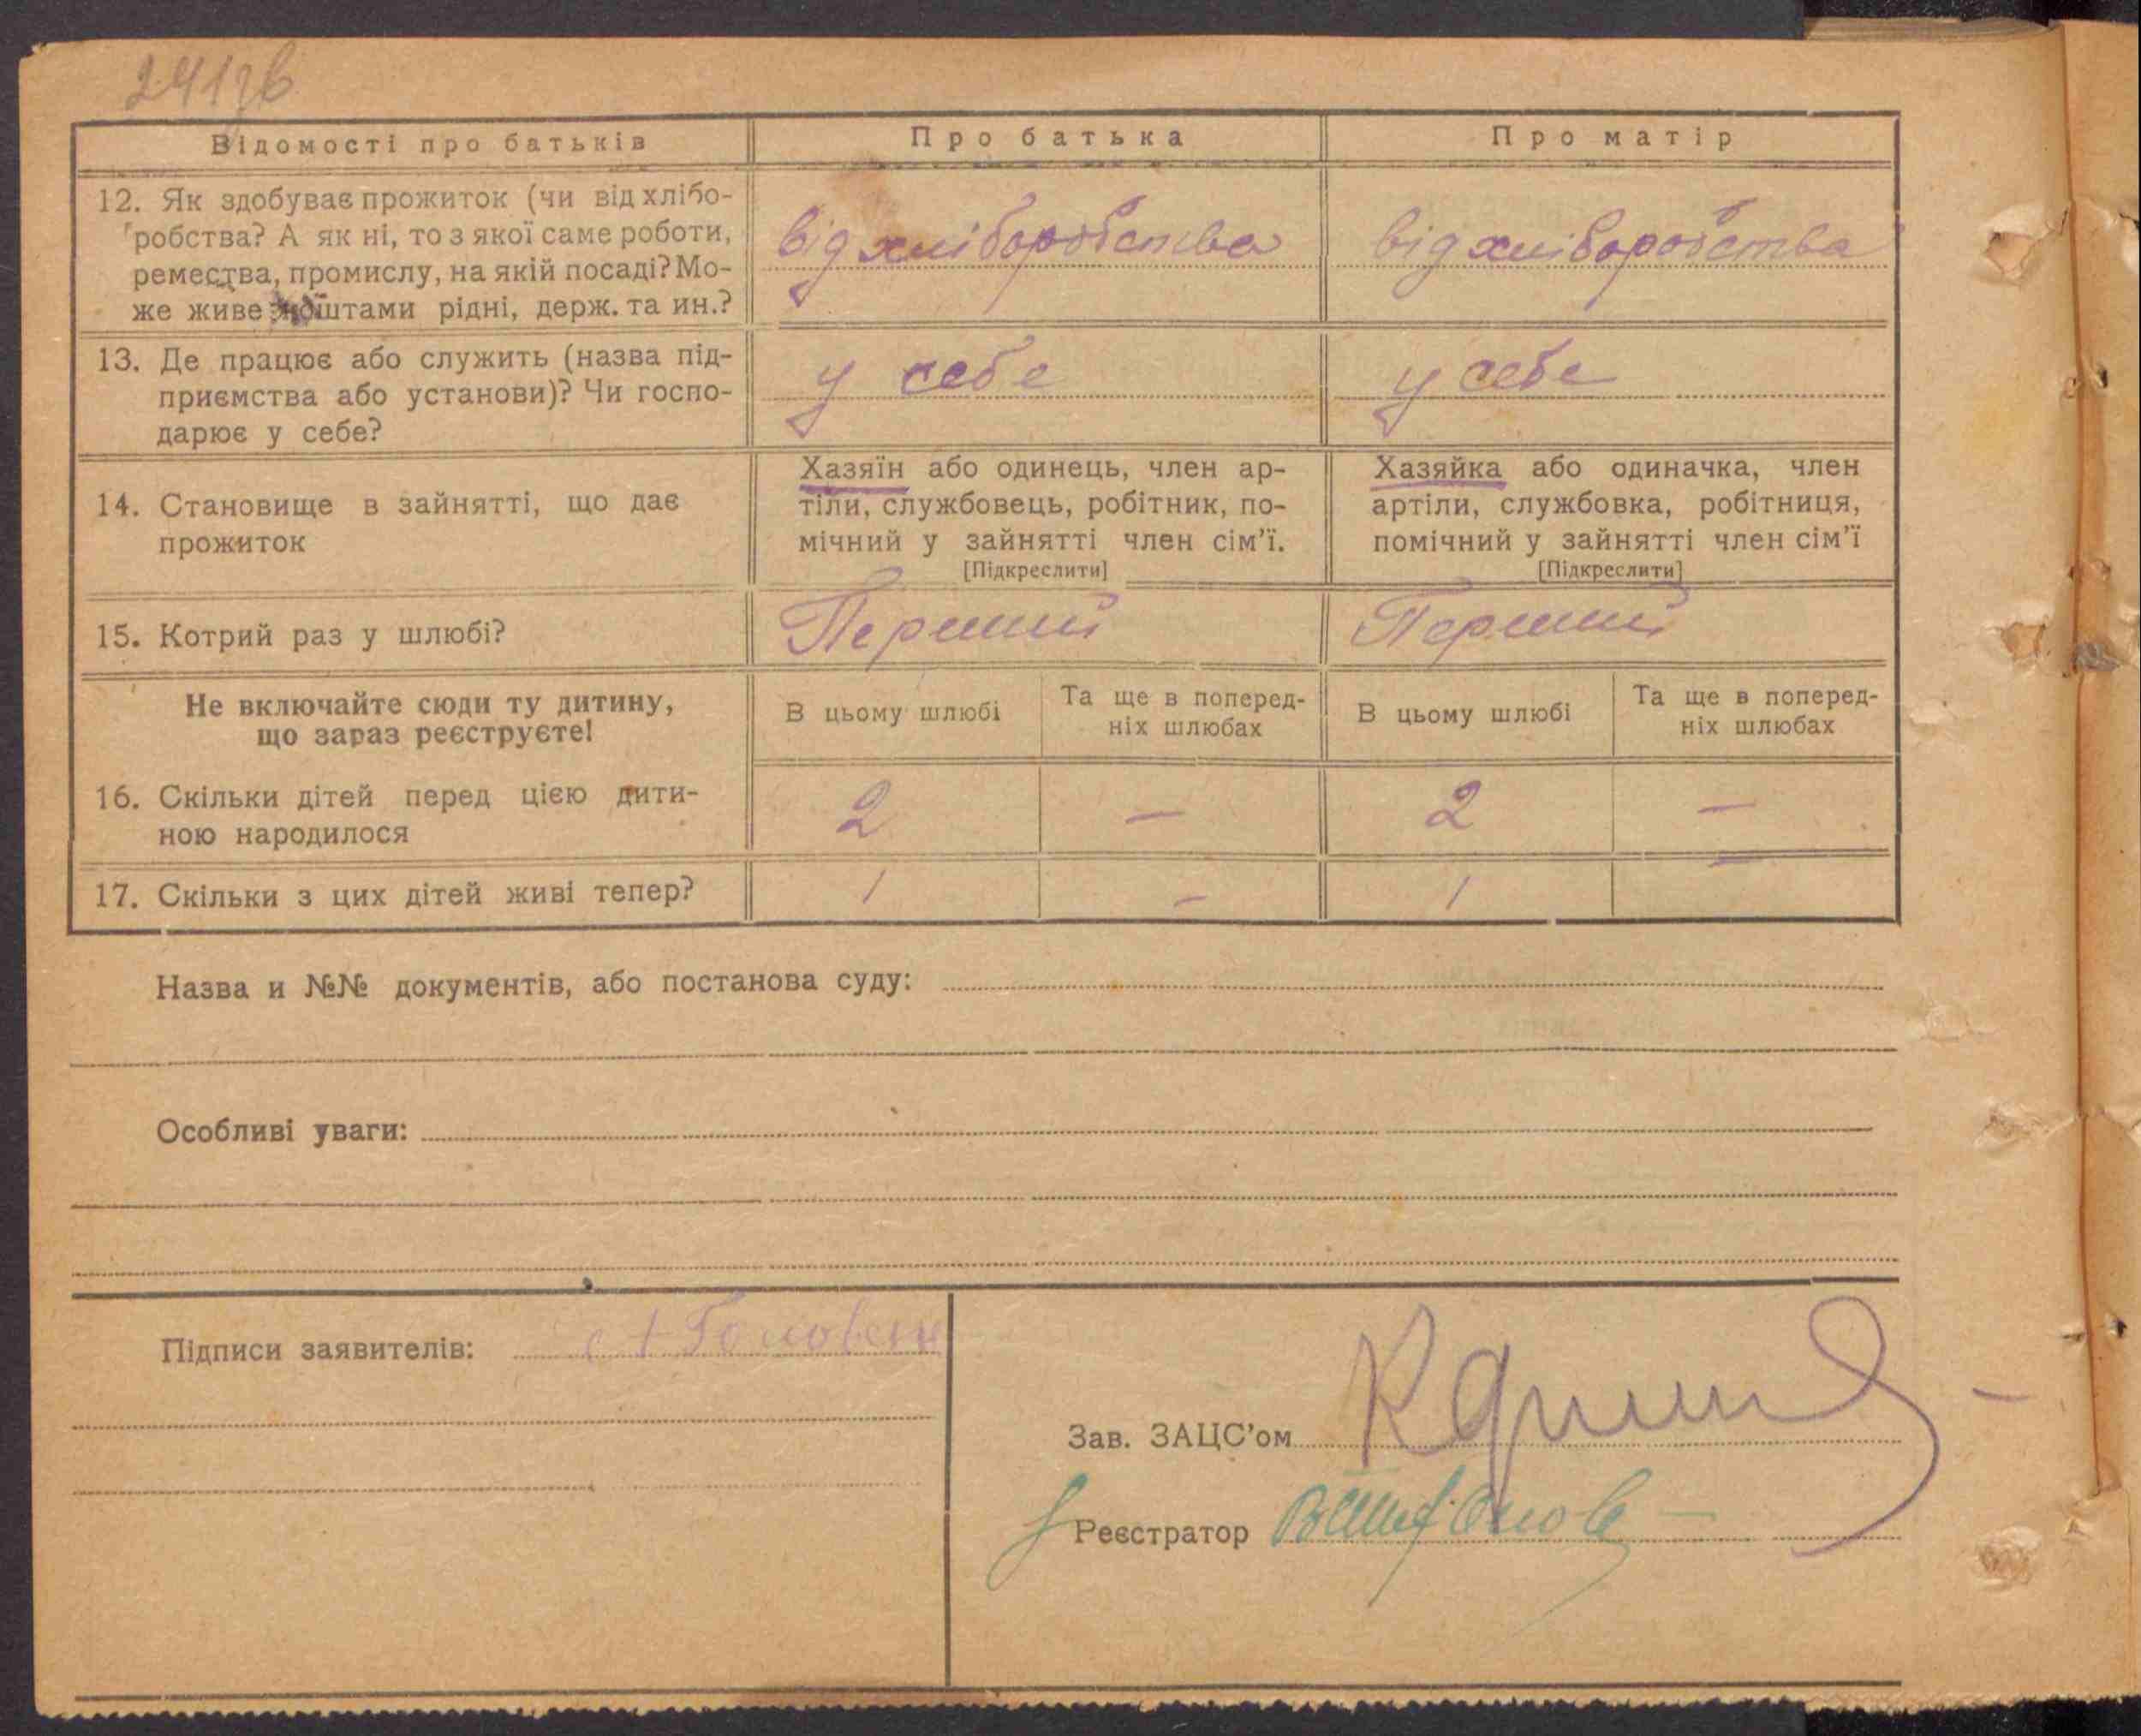 241зв
Відомості про батьків
Про батька
Про матір
12. Як здобуває прожиток (чи від хлібо-
робства? А як ні, то з якої саме роботи,
ремества, промислу, на якій посаді? Мо-
же живе коштами рідні, держ. та ин.?
від хліборобства
від хліборобства
13. Де працює або служить (назва під-
приємства або установи)? Чи госпо-
дарює у себе?
у себе
у себе
14. Становище в зайнятті, що дає
прожиток
Хазяїн або одинець, член ар-
тіли, службовець, робітник, по-
мічний у зайнятті член сім'ї.
[Підкреслити]
Хазяйка або одиначка, член
артіли, службовка, робітниця,
помічний у зайнятті член сім'ї
[Підкреслити]
15. Котрий раз у шлюбі?
Перший
Перший
Не включайте сюди ту дитину,
що зараз реєструєте!
В цьому шлюбі
Та ще в поперед-
ніх шлюбах
В цьому шлюбі
Та ще в поперед-
ніх шлюбах
16. Скільки дітей перед цією дити-
ною народилося
2
—
2
—
17. Скільки з цих дітей живі тепер?
1
—
1
—
Назва и №№ документів, або постанова суду:
Особливі уваги:
Підписи заявителів:
Зав. ЗАЦС'ом
Реєстратор